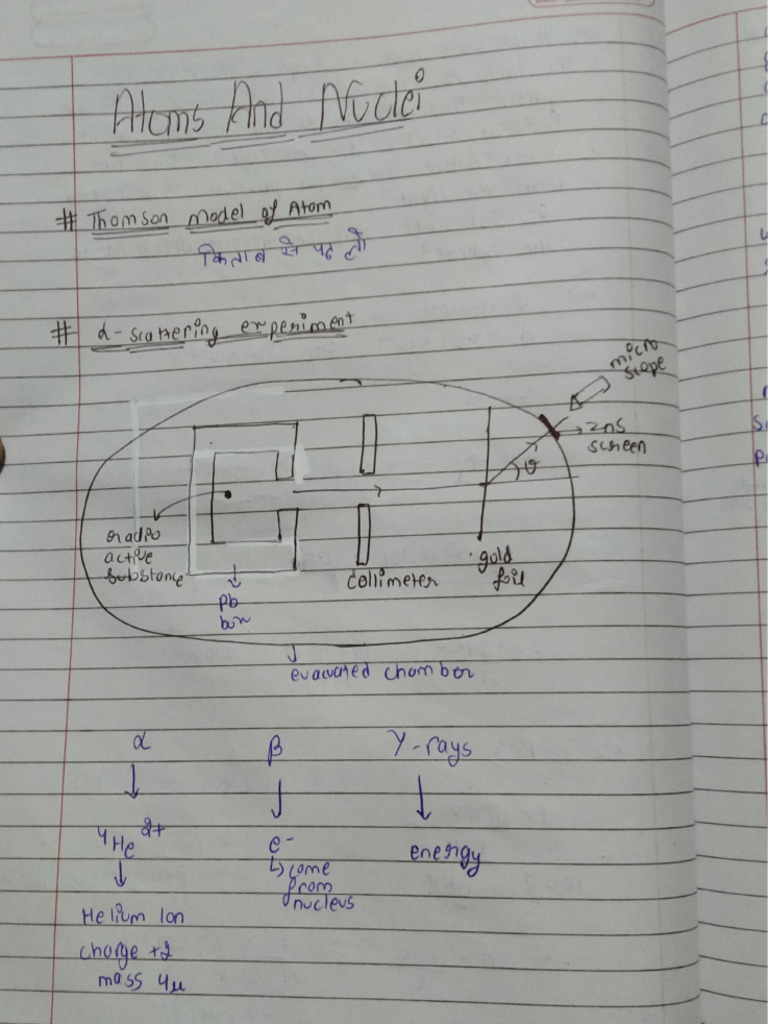 Atoms And Nuclei
# Thomson model of Atom
किताब से पढ़ लो
# α-scattering experiment
micro
scope
ZnS
screen
θ
radio
active
substance
Pb
box
collimeter
gold
foil
evacuated chamber
α β γ-rays
4He2+ e- energy
come
from
nucleus
Helium Ion
charge +2
mass 4u